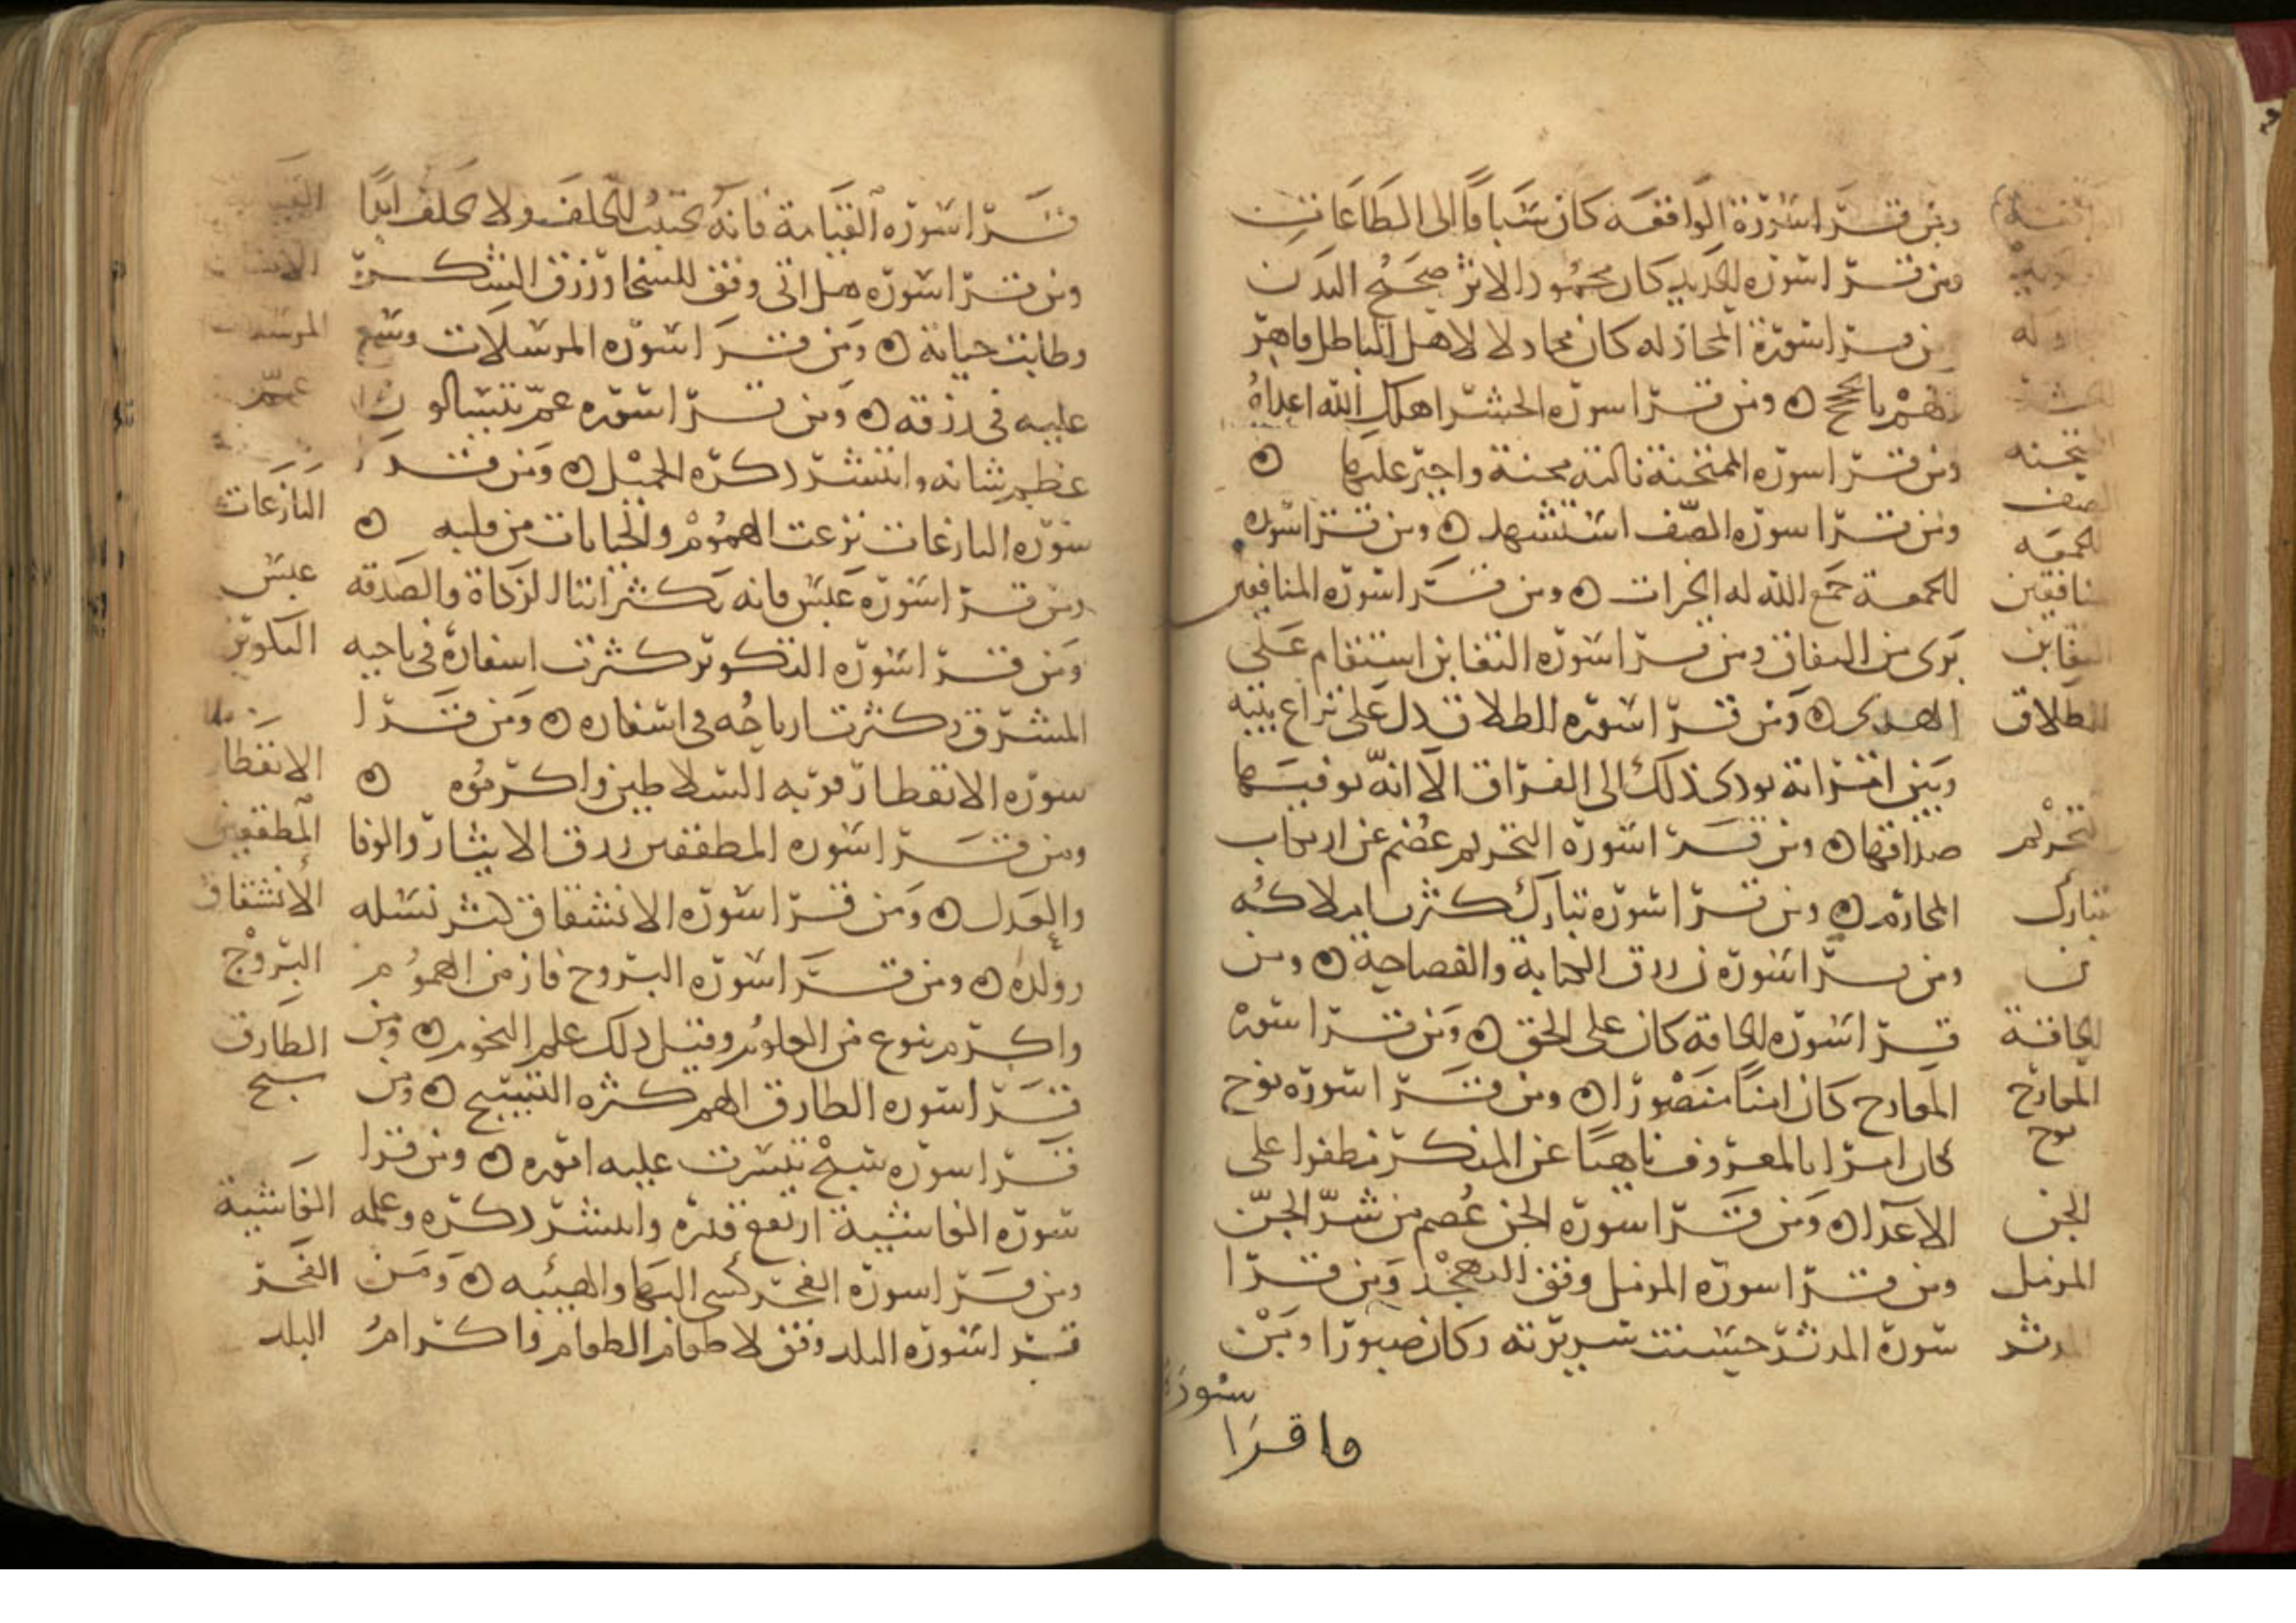 ومن قرا سورة الواقعه كان سباقا الى الطاعات
ومن قرا سوره الحديد كان محمود الاثر صحيح البدن
ومن قرا سورة المجادله كان مجادلا لاهل الباطل قاهر
لهم بالحجج ومن قرا سوره الحشر اهلك الله اعداه
ومن قرا سوره الممتحنة نالته محنة واجر عليها
ومن قرا سوره الصف استشهد ومن قرا سوره
الجمعة جمع الله له الخيرات ومن قرا سوره المنافقين
برى من النفاق ومن قرا سوره التغابن استقام على
الهدى ومن قرا سوره الطلاق دل على نزاع بينه
وبين امراته يودى ذلك الى الفراق الا انه يوفيها
صداقها ومن قرا سورة التحريم عصم عن ارتكاب
المحارم ومن قرا سوره تبارك كثرت املاكه
ومن قرا سورة ن رزق الكتابة والفصاحة ومن
قرا سوره الحاقه كان على الحق ومن قرا سوره
المعارج كان امنا منصورا ومن قرا سورة نوح
كان امرا بالمعروف ناهيا عن المنكر مظفرا على
الاعدا ومن قرا سورة الجن عصم من شر الجن
ومن قرا سوره المزمل وفق التهجد ومن قرا
سورة المدثر حسنت سريرته وكان صبورا ومن
سورة
ما قرا
المجادله
الممتحنه
الصف
الجمعه
المنافقين
التغابن
الطلاق
التحريم
تبارك
ن
الحاقة
المعارج
نوح
الجن
المزمل
المدثر
قرا سوره القيامة فانه يجتنب الحلف ولا يحلف ابدا
ومن قرا سوره هل اتى وفق للسخا ورزق الشكر
وطابت حياته ومن قرا سوره المرسلات وسع
عليه فى رزقه ومن قرا سوره عم يتسالون
عظم شانه وانتشر ذكره الجميل ومن قرا
سوره النازعات نزعت الهموم والخيانات من قلبه
ومن قرا سورة عبس فانه يكثر ايتا الزكاة والصدقه
ومن قرا سوره التكوير كثرت اسفاره فى ناحيه
المشرق وكثرت ارباحه فى اسفاره ومن قرا
سوره الانفطار قربه السلاطين واكرموه
ومن قرا سوره المطففين رزق الايثار والوفا
والعدل ومن قرا سوره الانشقاق كثر نسله
وولده ومن قرا سوره البروج فاز من الهموم
واكرم بنوع من العلوم وقيل ذلك علم النجوم ومن
قرا سوره الطارق الهم كثره التسبيح ومن
قرا سوره سبح تيسرت عليه اموره ومن قرا
سوره الغاشية ارتفع قدره وانتشر ذكره وعلمه
ومن قرا سوره الفجر كسى البها والهيبه ومن
قرا سوره البلد وفق لاطعام الطعام واكرام
المرسلات
عم
النازعات
عبس
التكوير
الانفطار
المطففين
الانشقاق
البروج
الطارق
سبح
الغاشية
الفجر
البلد